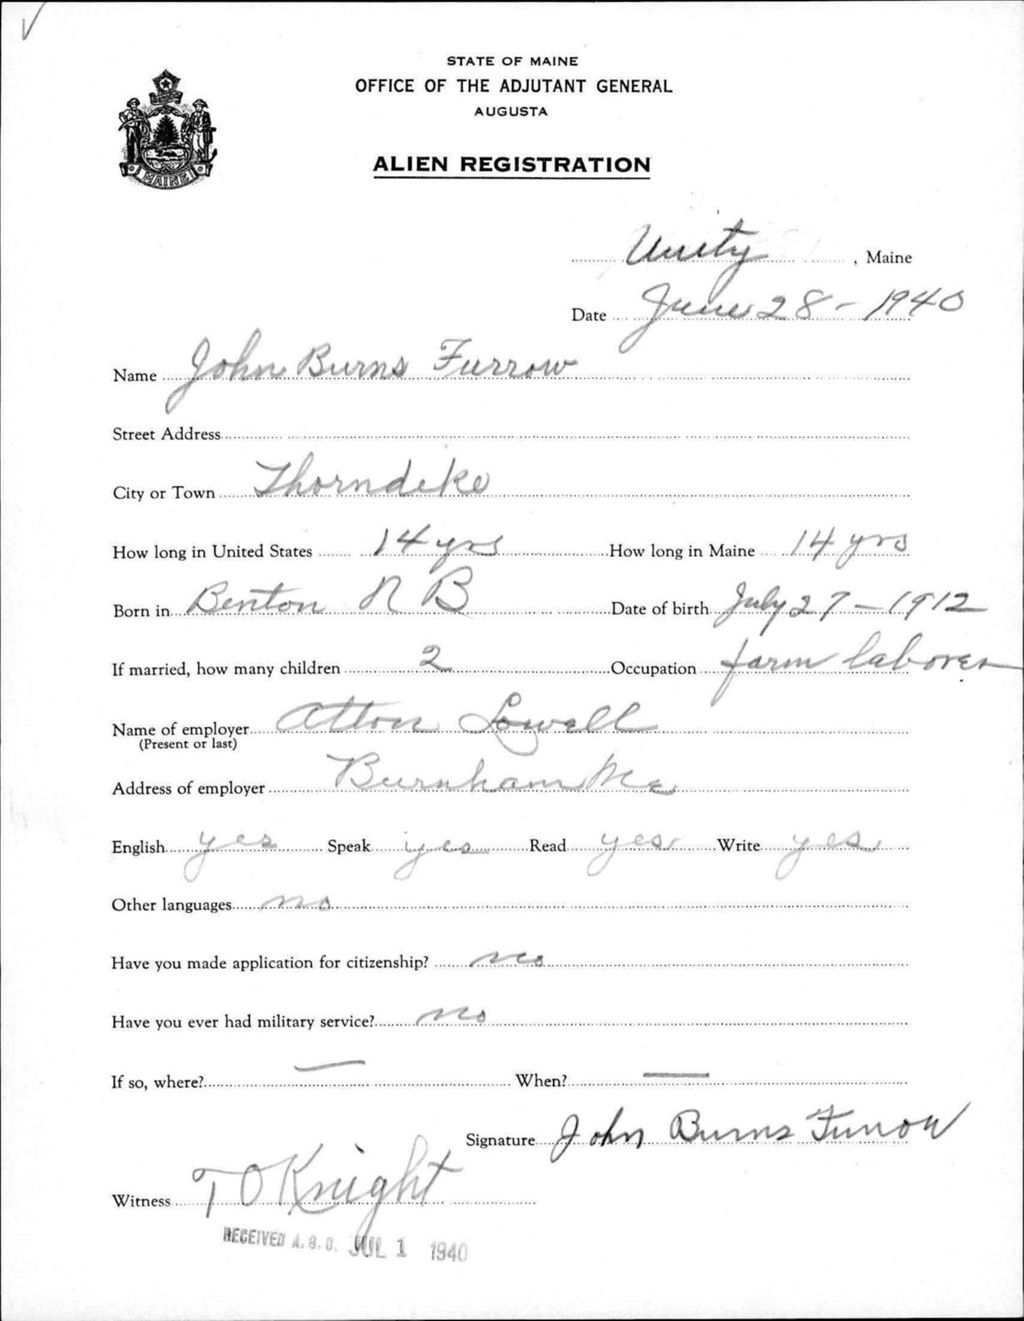 STATE OF MAINE
OFFICE OF THE ADJUTANT GENERAL
AUGUSTA
ALIEN REGISTRATION
MAINE
Unity, Maine
Date June 28 - 1940
Name John Burns Furrow
Street Address
City or Town Thorndike
How long in United States 14 yrs How long in Maine 14 yrs
Born in Benton N B Date of birth July 27 - 1912
If married, how many children 2 Occupation farm laborer
Name of employer Alton Lowell
(Present or last)
Address of employer Burnham Me
English yes Speak yes Read yes Write yes
Other languages no
Have you made application for citizenship? no
Have you ever had military service? no
If so, where? — When? —
Signature John Burns Furrow
Witness T O Knight
RECEIVED A.G.O. JUL 1 1940